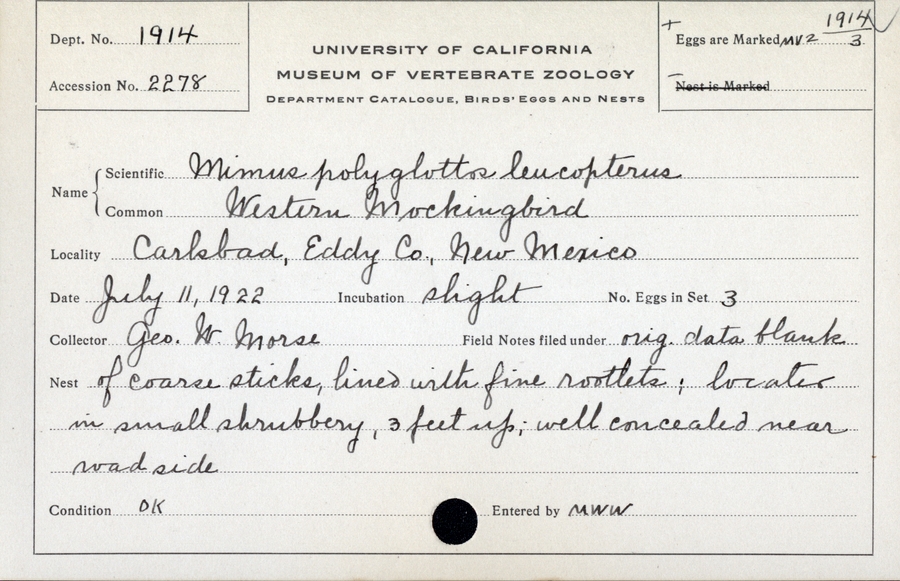 Dept. No. 1914
Accession No. 2278
UNIVERSITY OF CALIFORNIA
MUSEUM OF VERTEBRATE ZOOLOGY
DEPARTMENT CATALOGUE, BIRDS' EGGS AND NESTS
+ Eggs are Marked MVZ 1914/3
– Nest is Marked
Name
Scientific Mimus polyglottos leucopterus
Common Western Mockingbird
Locality Carlsbad, Eddy Co., New Mexico
Date July 11, 1922 Incubation slight No. Eggs in Set 3
Collector Geo. W. Morse Field Notes filed under orig. data blank
Nest of coarse sticks, lined with fine rootlets; located
in small shrubbery, 3 feet up; well concealed near
road side
Condition OK Entered by MWW